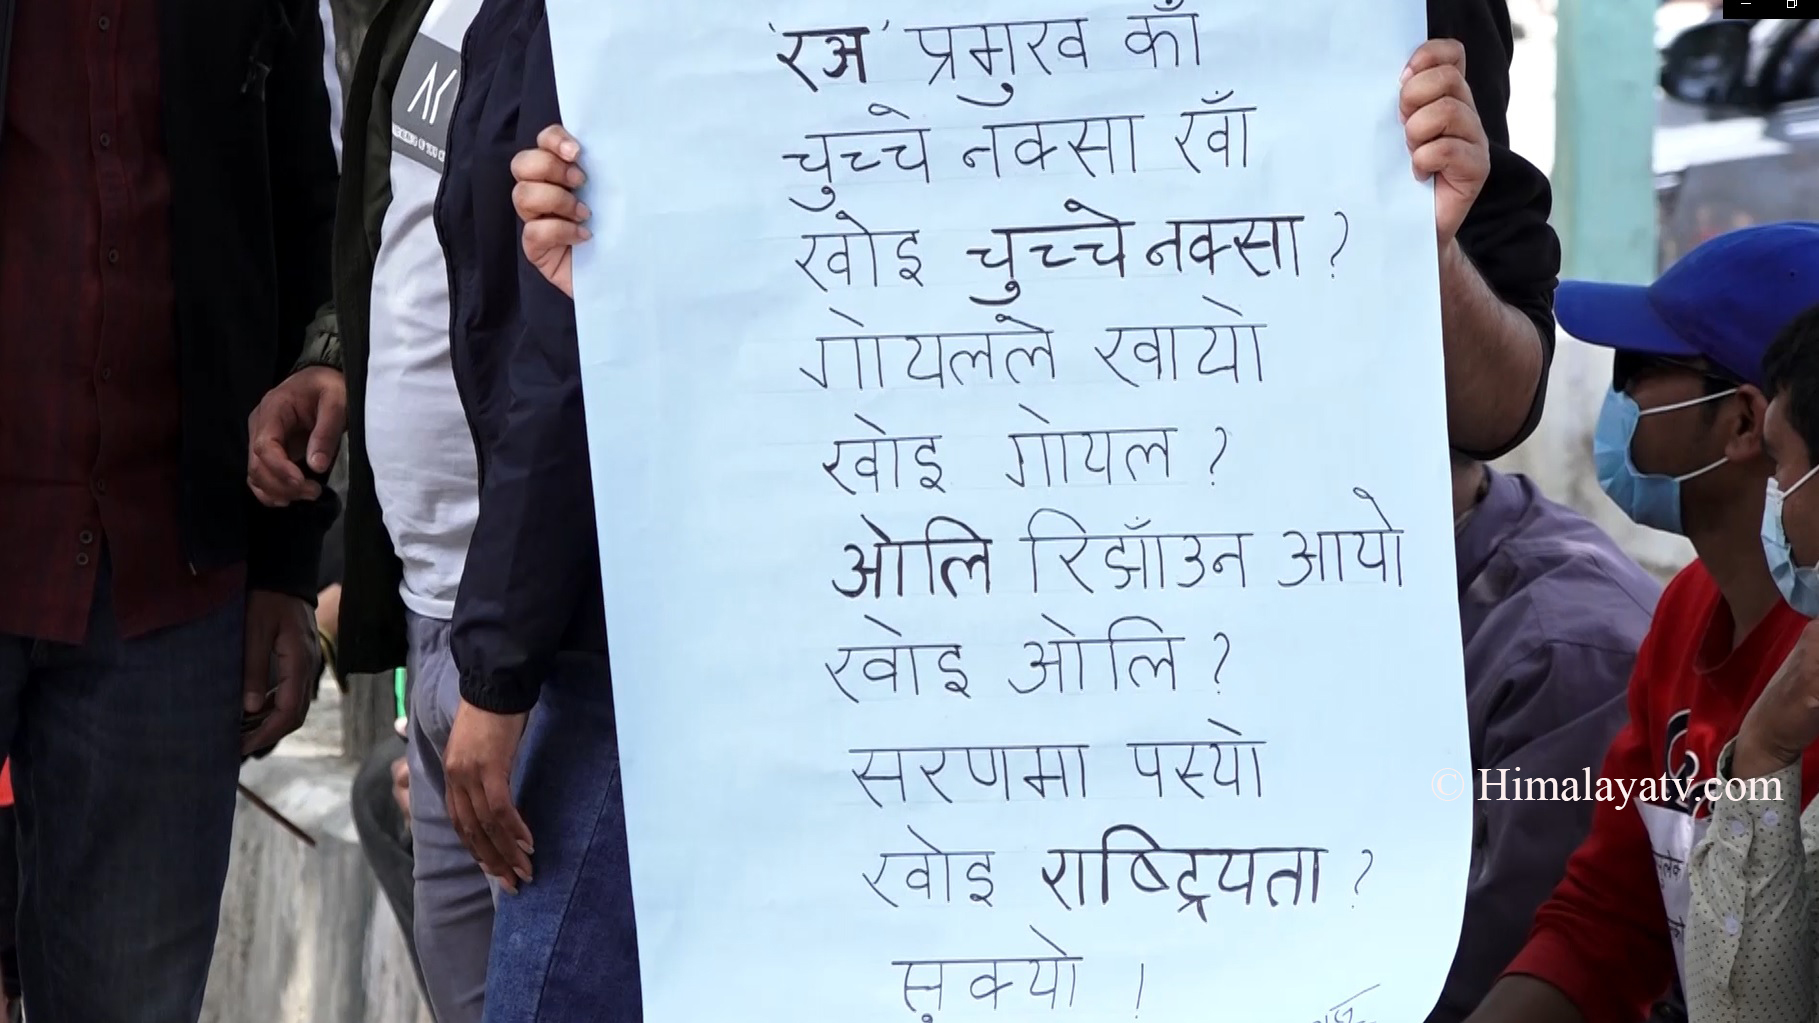 'रअ' प्रमुख काँ
चुच्चे नक्सा खाँ
खोइ चुच्चे नक्सा ?
गोयलले खायो
खोइ गोयल ?
ओलि रिझाँउन आयो
खोइ ओलि ?
सरणमा पस्यो
खोइ राष्ट्रियता ?
सुक्यो ।
© Himalayatv.com